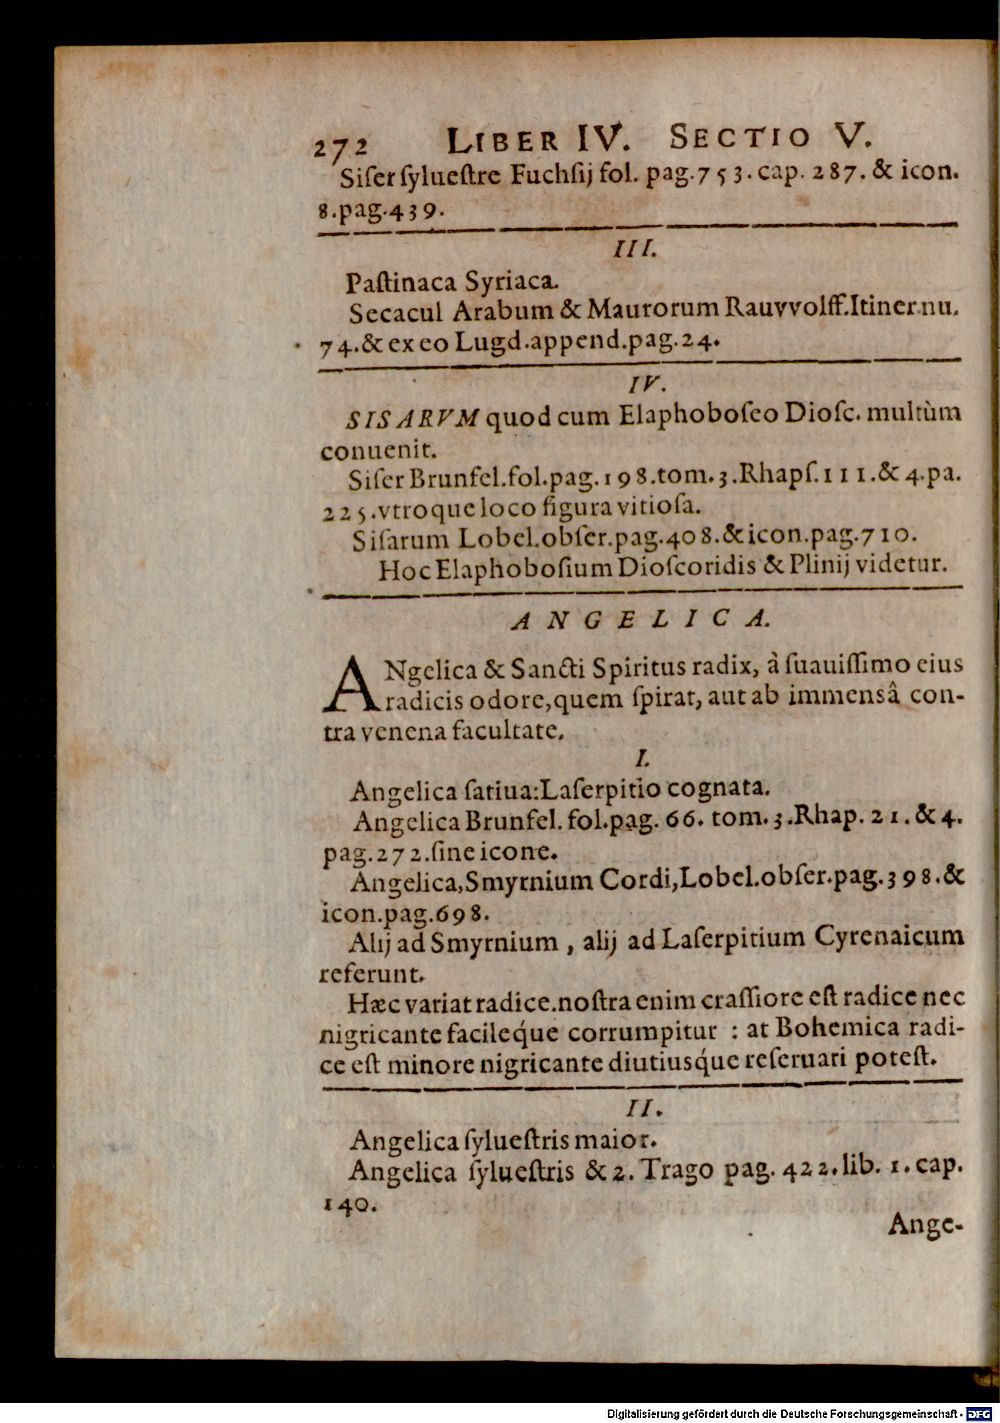 272 LIBER IV. SECTIO V.
Siſer ſylueſtre Fuchſij fol. pag. 753. cap. 287. & icon.
8. pag. 439.
III.
Paſtinaca Syriaca.
Secacul Arabum & Maurorum Rauvvolff. Itiner. nu.
74. & ex eo Lugd. append. pag. 24.
IV.
SISARVM quod cum Elaphoboſco Dioſc. multùm
conuenit.
Siſer Brunfel. fol. pag. 198. tom. 3. Rhapſ. 111. & 4. pa.
225. vtroque loco figura vitioſa.
Siſarum Lobel. obſer. pag. 408. & icon. pag. 710.
Hoc Elaphoboſium Dioſcoridis & Plinij videtur.
ANGELICA.
ANgelica & Sancti Spiritus radix, à ſuauiſſimo eius
radicis odore, quem ſpirat, aut ab immensâ con-
tra venena facultate.
I.
Angelica ſatiua: Laſerpitio cognata.
Angelica Brunfel. fol. pag. 66. tom. 3. Rhap. 21. & 4.
pag. 272. ſine icone.
Angelica, Smyrnium Cordi, Lobel. obſer. pag. 398. &
icon. pag. 698.
Alij ad Smyrnium, alij ad Laſerpitium Cyrenaicum
referunt.
Hæc variat radice. noſtra enim craſſiore eſt radice nec
nigricante facileq́ue corrumpitur : at Bohemica radi-
ce eſt minore nigricante diutiusq́ue reſeruari poteſt.
II.
Angelica ſylueſtris maior.
Angelica ſylueſtris & 2. Trago pag. 422. lib. 1. cap.
140.
Ange-
Digitalisierung gefördert durch die Deutsche Forschungsgemeinschaft - DFG